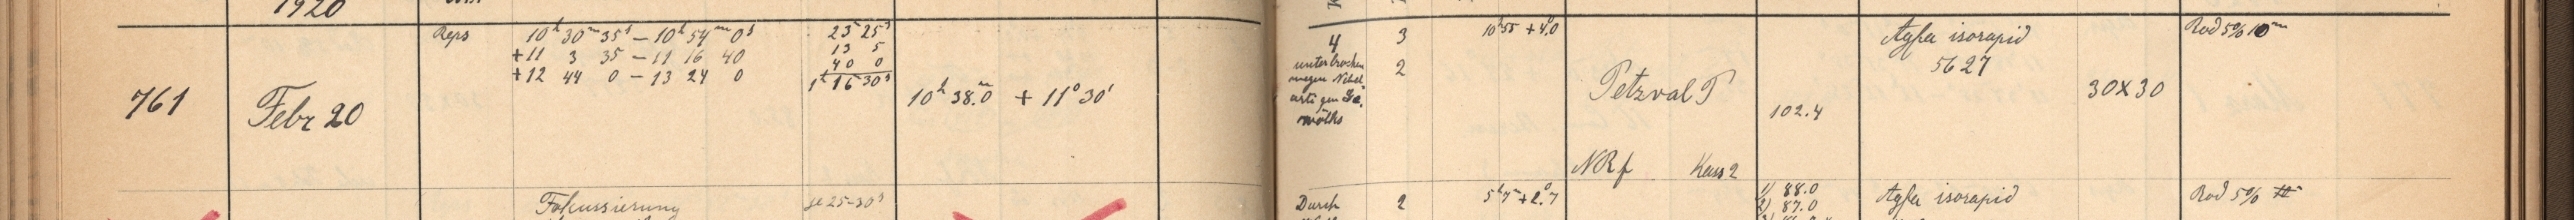 1920
Reps
10h 30m 35s – 10h 54m 0s
+11 3 35 – 11 16 40
+12 44 0 – 13 24 0
23 25s
13 5
40 0
1h 16 30s
761
Febr 20
10h 38.m0 + 11° 30'
4
unterbrochen
wegen Nebel
artigen Ge.
wölks
3
2
10h55 + 4°.0
Petzval P
102.4
NR f Kass 2
Agfa isorapid
5627
30×30
Rod 5% 10m
Fokussierung
je 25–30s
Durch
2
5h 7m + 2°.7
1) 88.0
2) 87.0
Agfa isorapid
Rod 5%